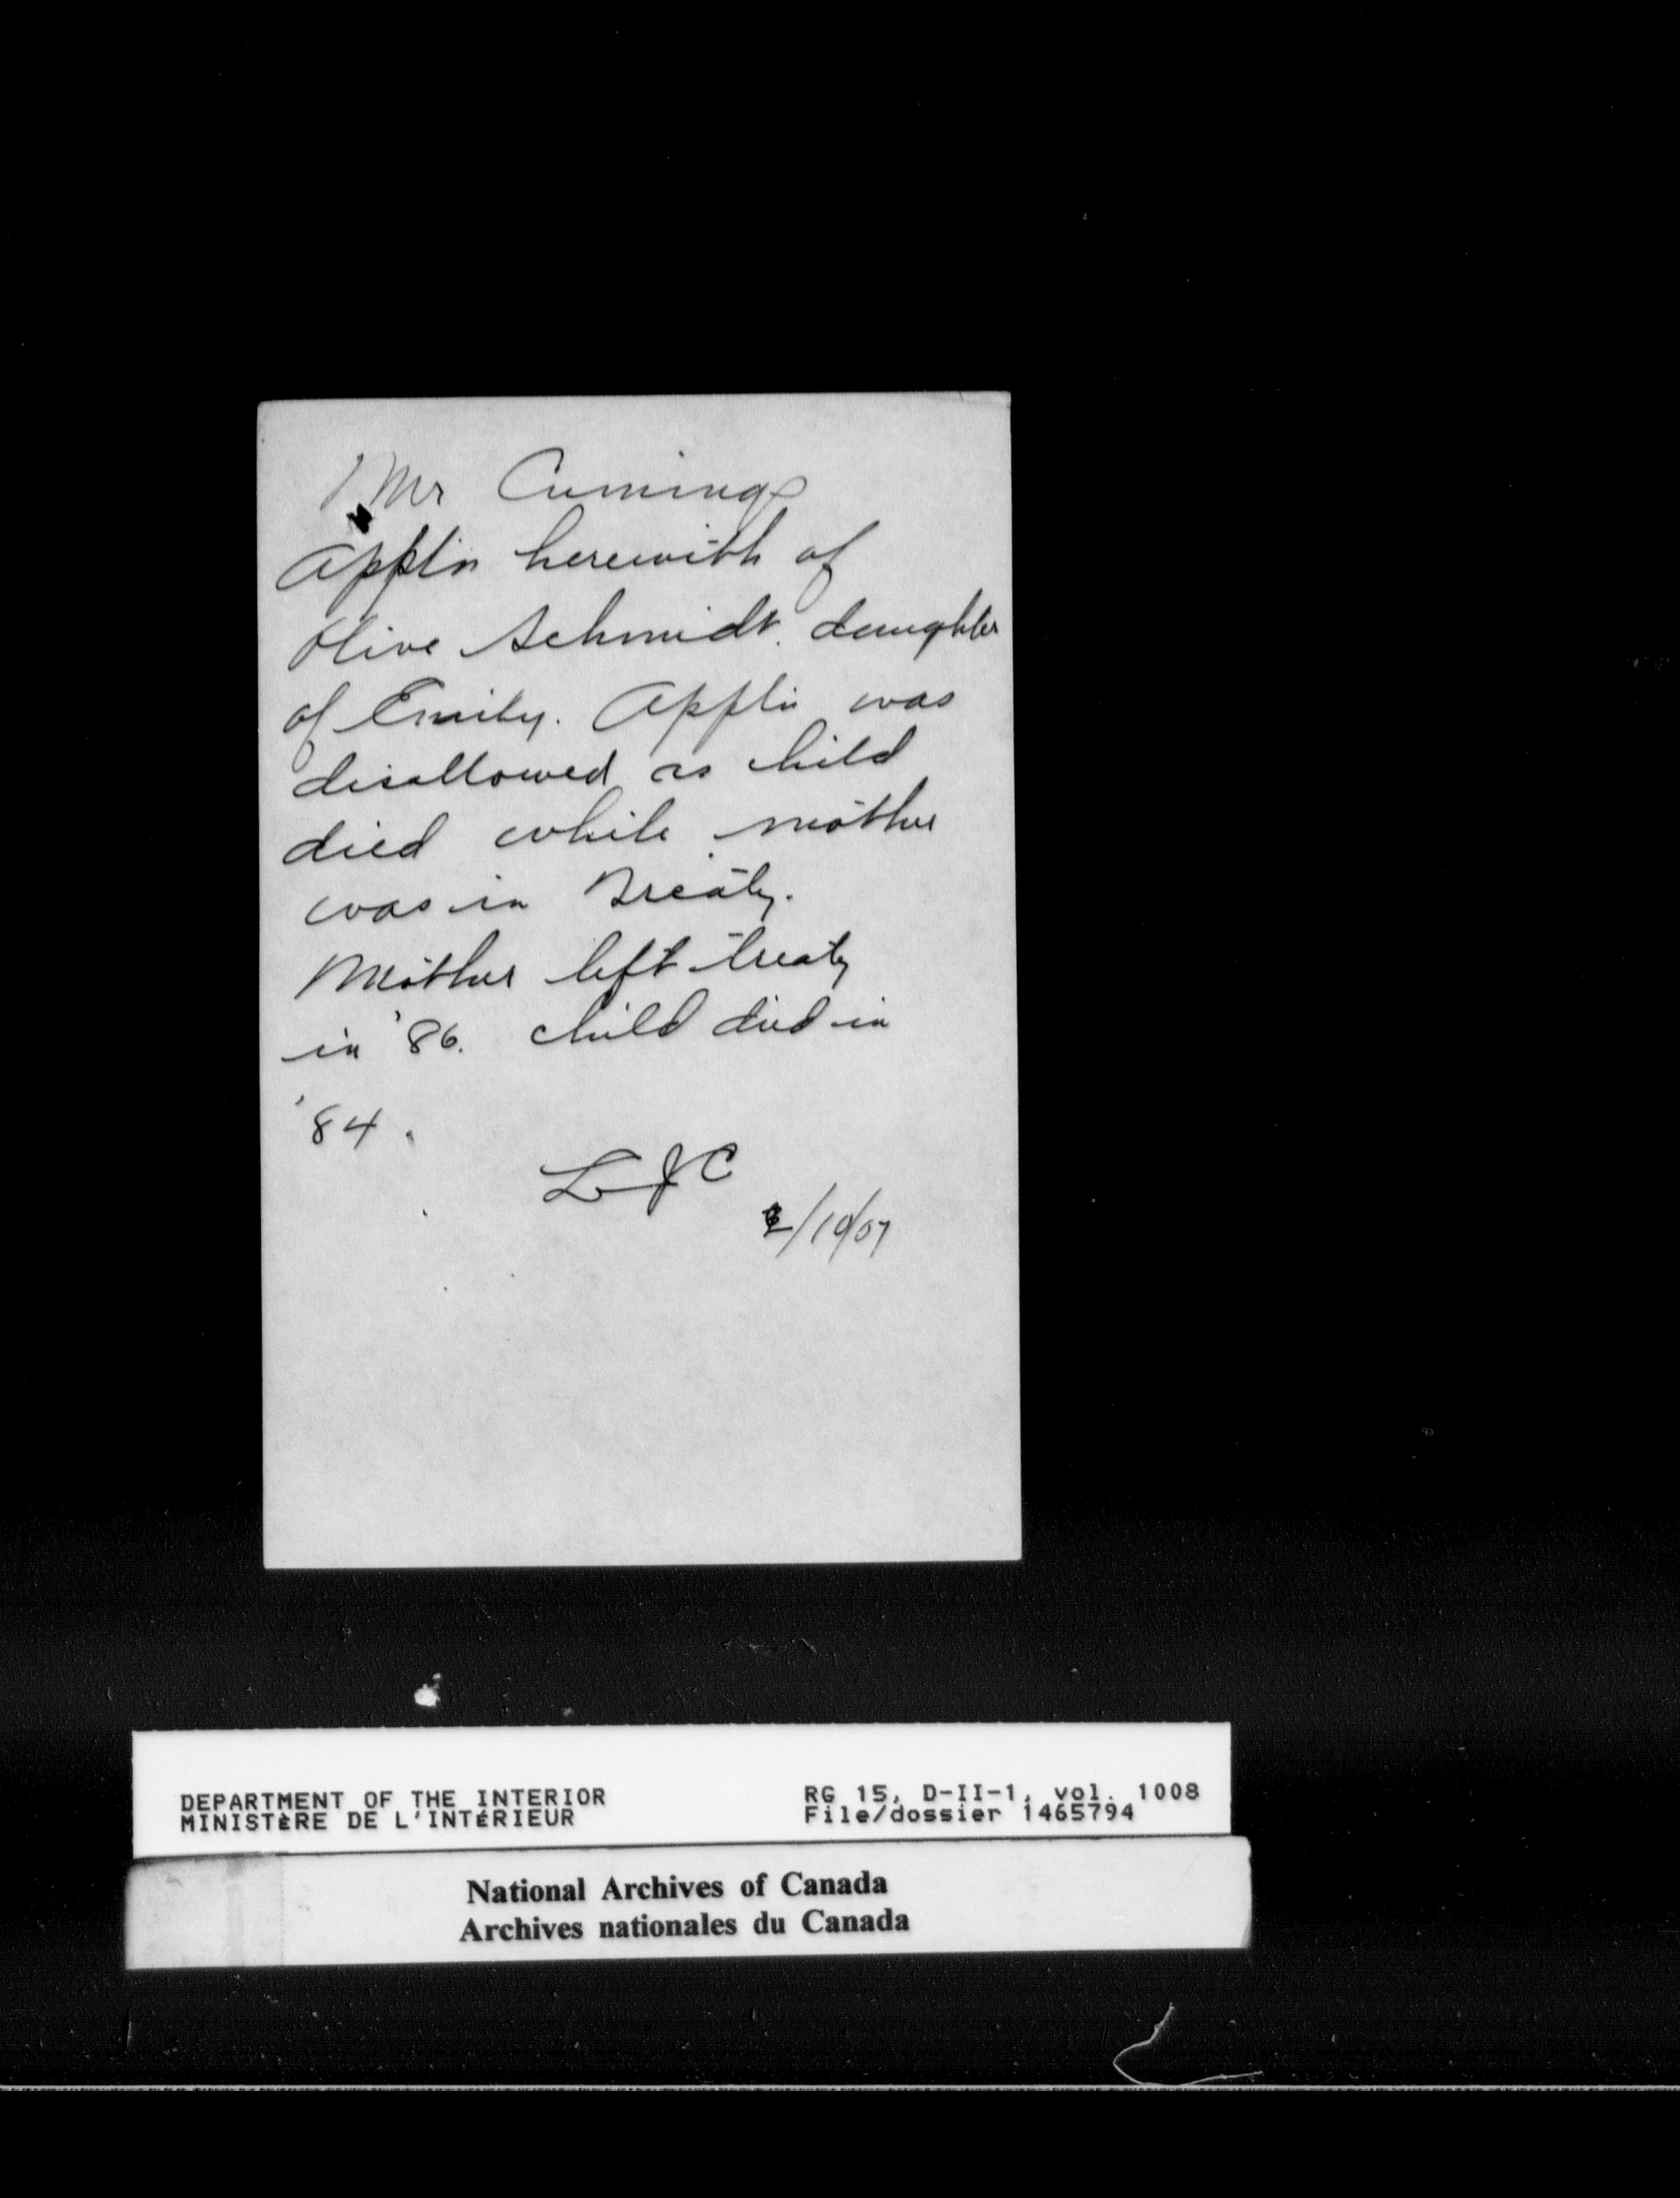 Mr Cumings
Appln herewith of
Olive Schmidt. daughter
of Emily. Appln was
disallowed as child
died while mother
was in Treaty.
Mother left treaty
in '86. child died in
'84.
LJC
/10/07
DEPARTMENT OF THE INTERIOR
MINISTÈRE DE L'INTÉRIEUR
RG 15, D-II-1, vol. 1008
File/dossier 1465794
National Archives of Canada
Archives nationales du Canada